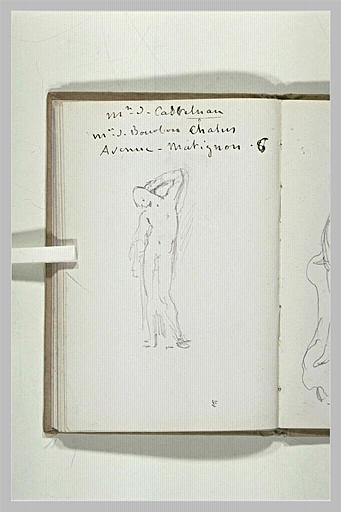 Mr. J. Castelnau
Mr. J. Bourbon Chalus
Avenue - Matignon . 6